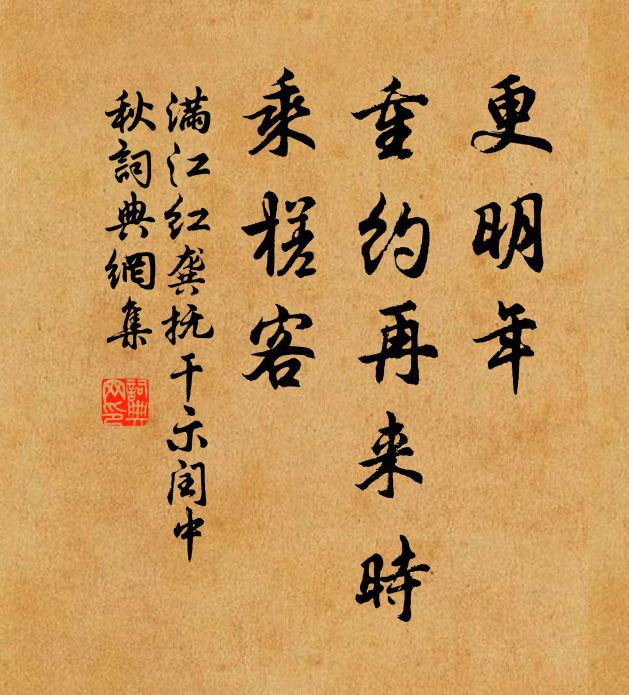 更明年
重约再来時
乘槎客
满江红龚抚干示闰中
秋詞典網集
詞典網印